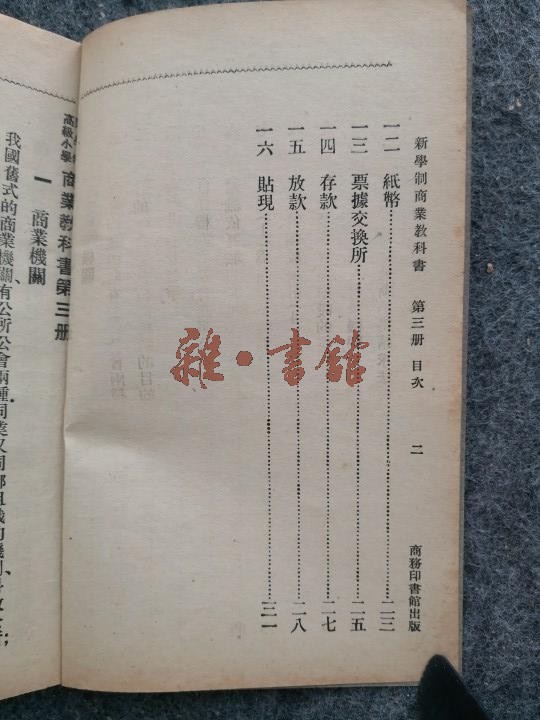 新學制商業教科書 第三册 目次 二 商務印書館出版
一二 紙幣……二三
一三 票據交換所……二五
一四 存款……二七
一五 放款……二八
一六 貼現……三一
雜·書館
高級小學 商業教科書第三册
一 商業機關
我國舊式的商業機關、有公所公會兩種同業又同鄉組